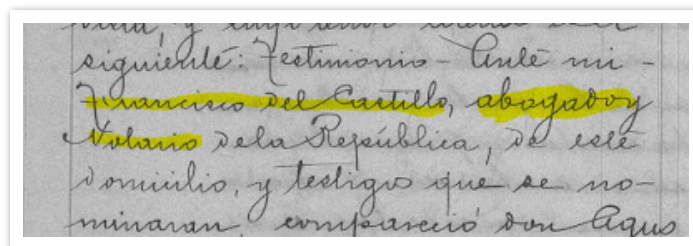 siguiente: Testimonio - Ante mi -
Francisco del Castillo, abogado y
Notario dela República, de este
domicilio, y testigos que se no-
minaran, compareció don Agus